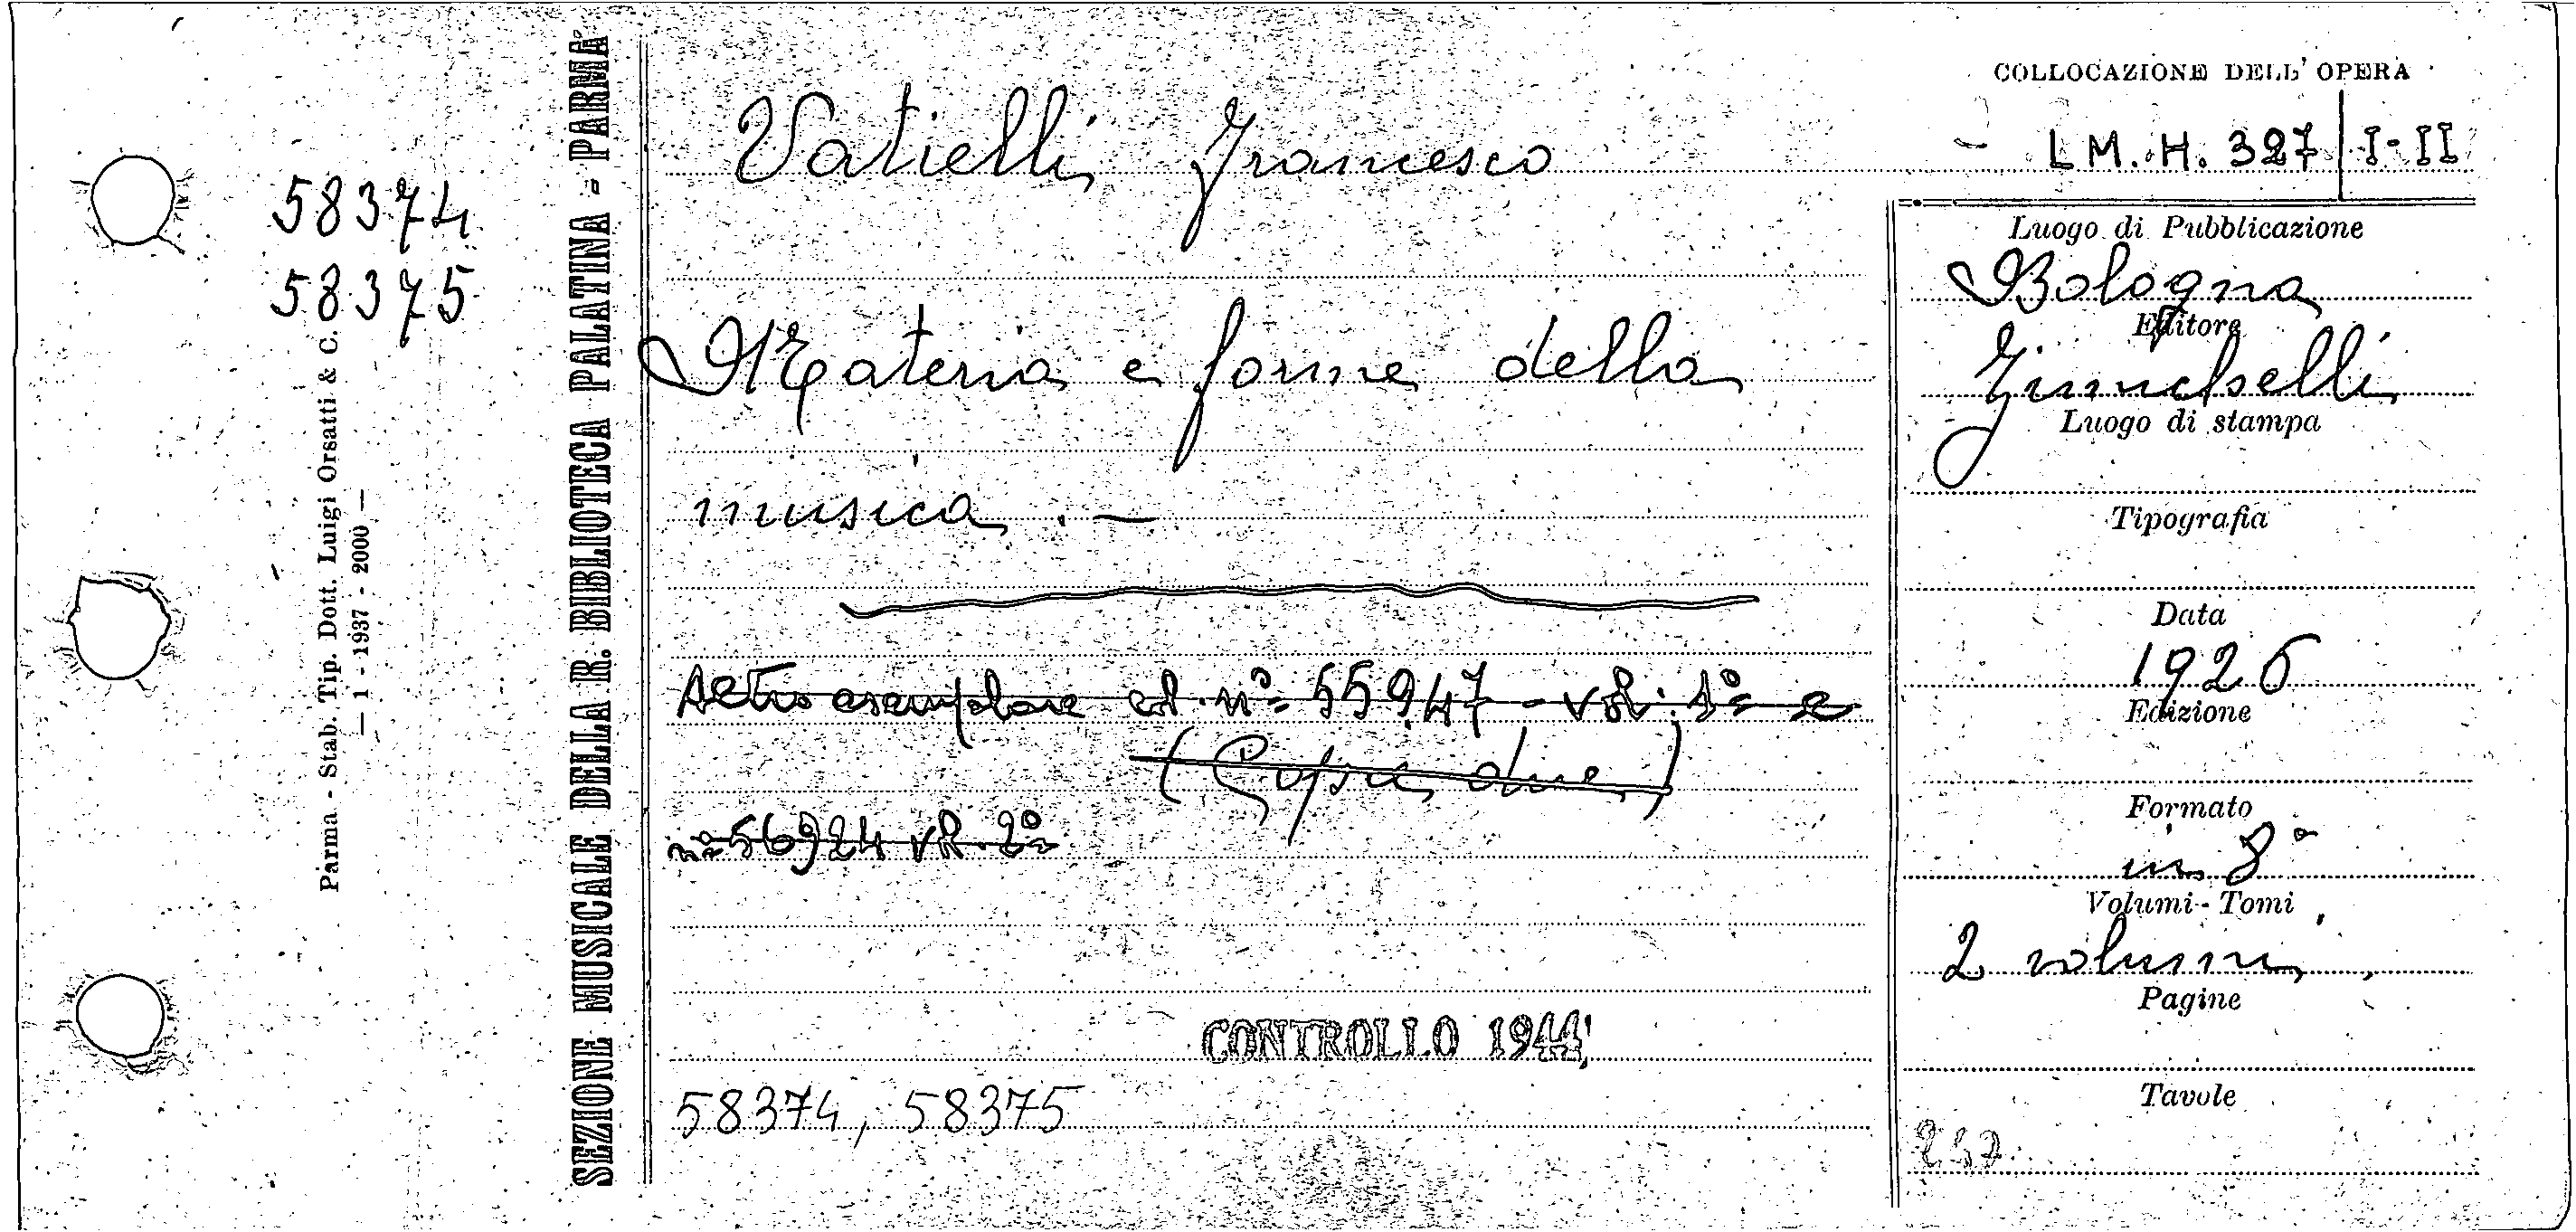 COLLOCAZIONE DELL' OPERA
LM. H. 327 I-II
58374
58375
Parma - Stab. Tip. Dott. Luigi Orsatti & C.
— 1 - 1937 - 2000 —
SEZIONE MUSICALE DELLA R. BIBLIOTECA PALATINA - PARMA
Vatielli Francesco
Materia e forme della
musica . —
Altro esemplare col n° 55947 - vol. 1° e
(Copie due)
n° 56924 vol. 2°
CONTROLLO 1944
58374, 58375
Luogo di Pubblicazione
Bologna
Editore
Luogo di stampa
Tipografia
Data
1926
Edizione
Formato
in 8°
Volumi - Tomi
2 volumi
Pagine
Tavole